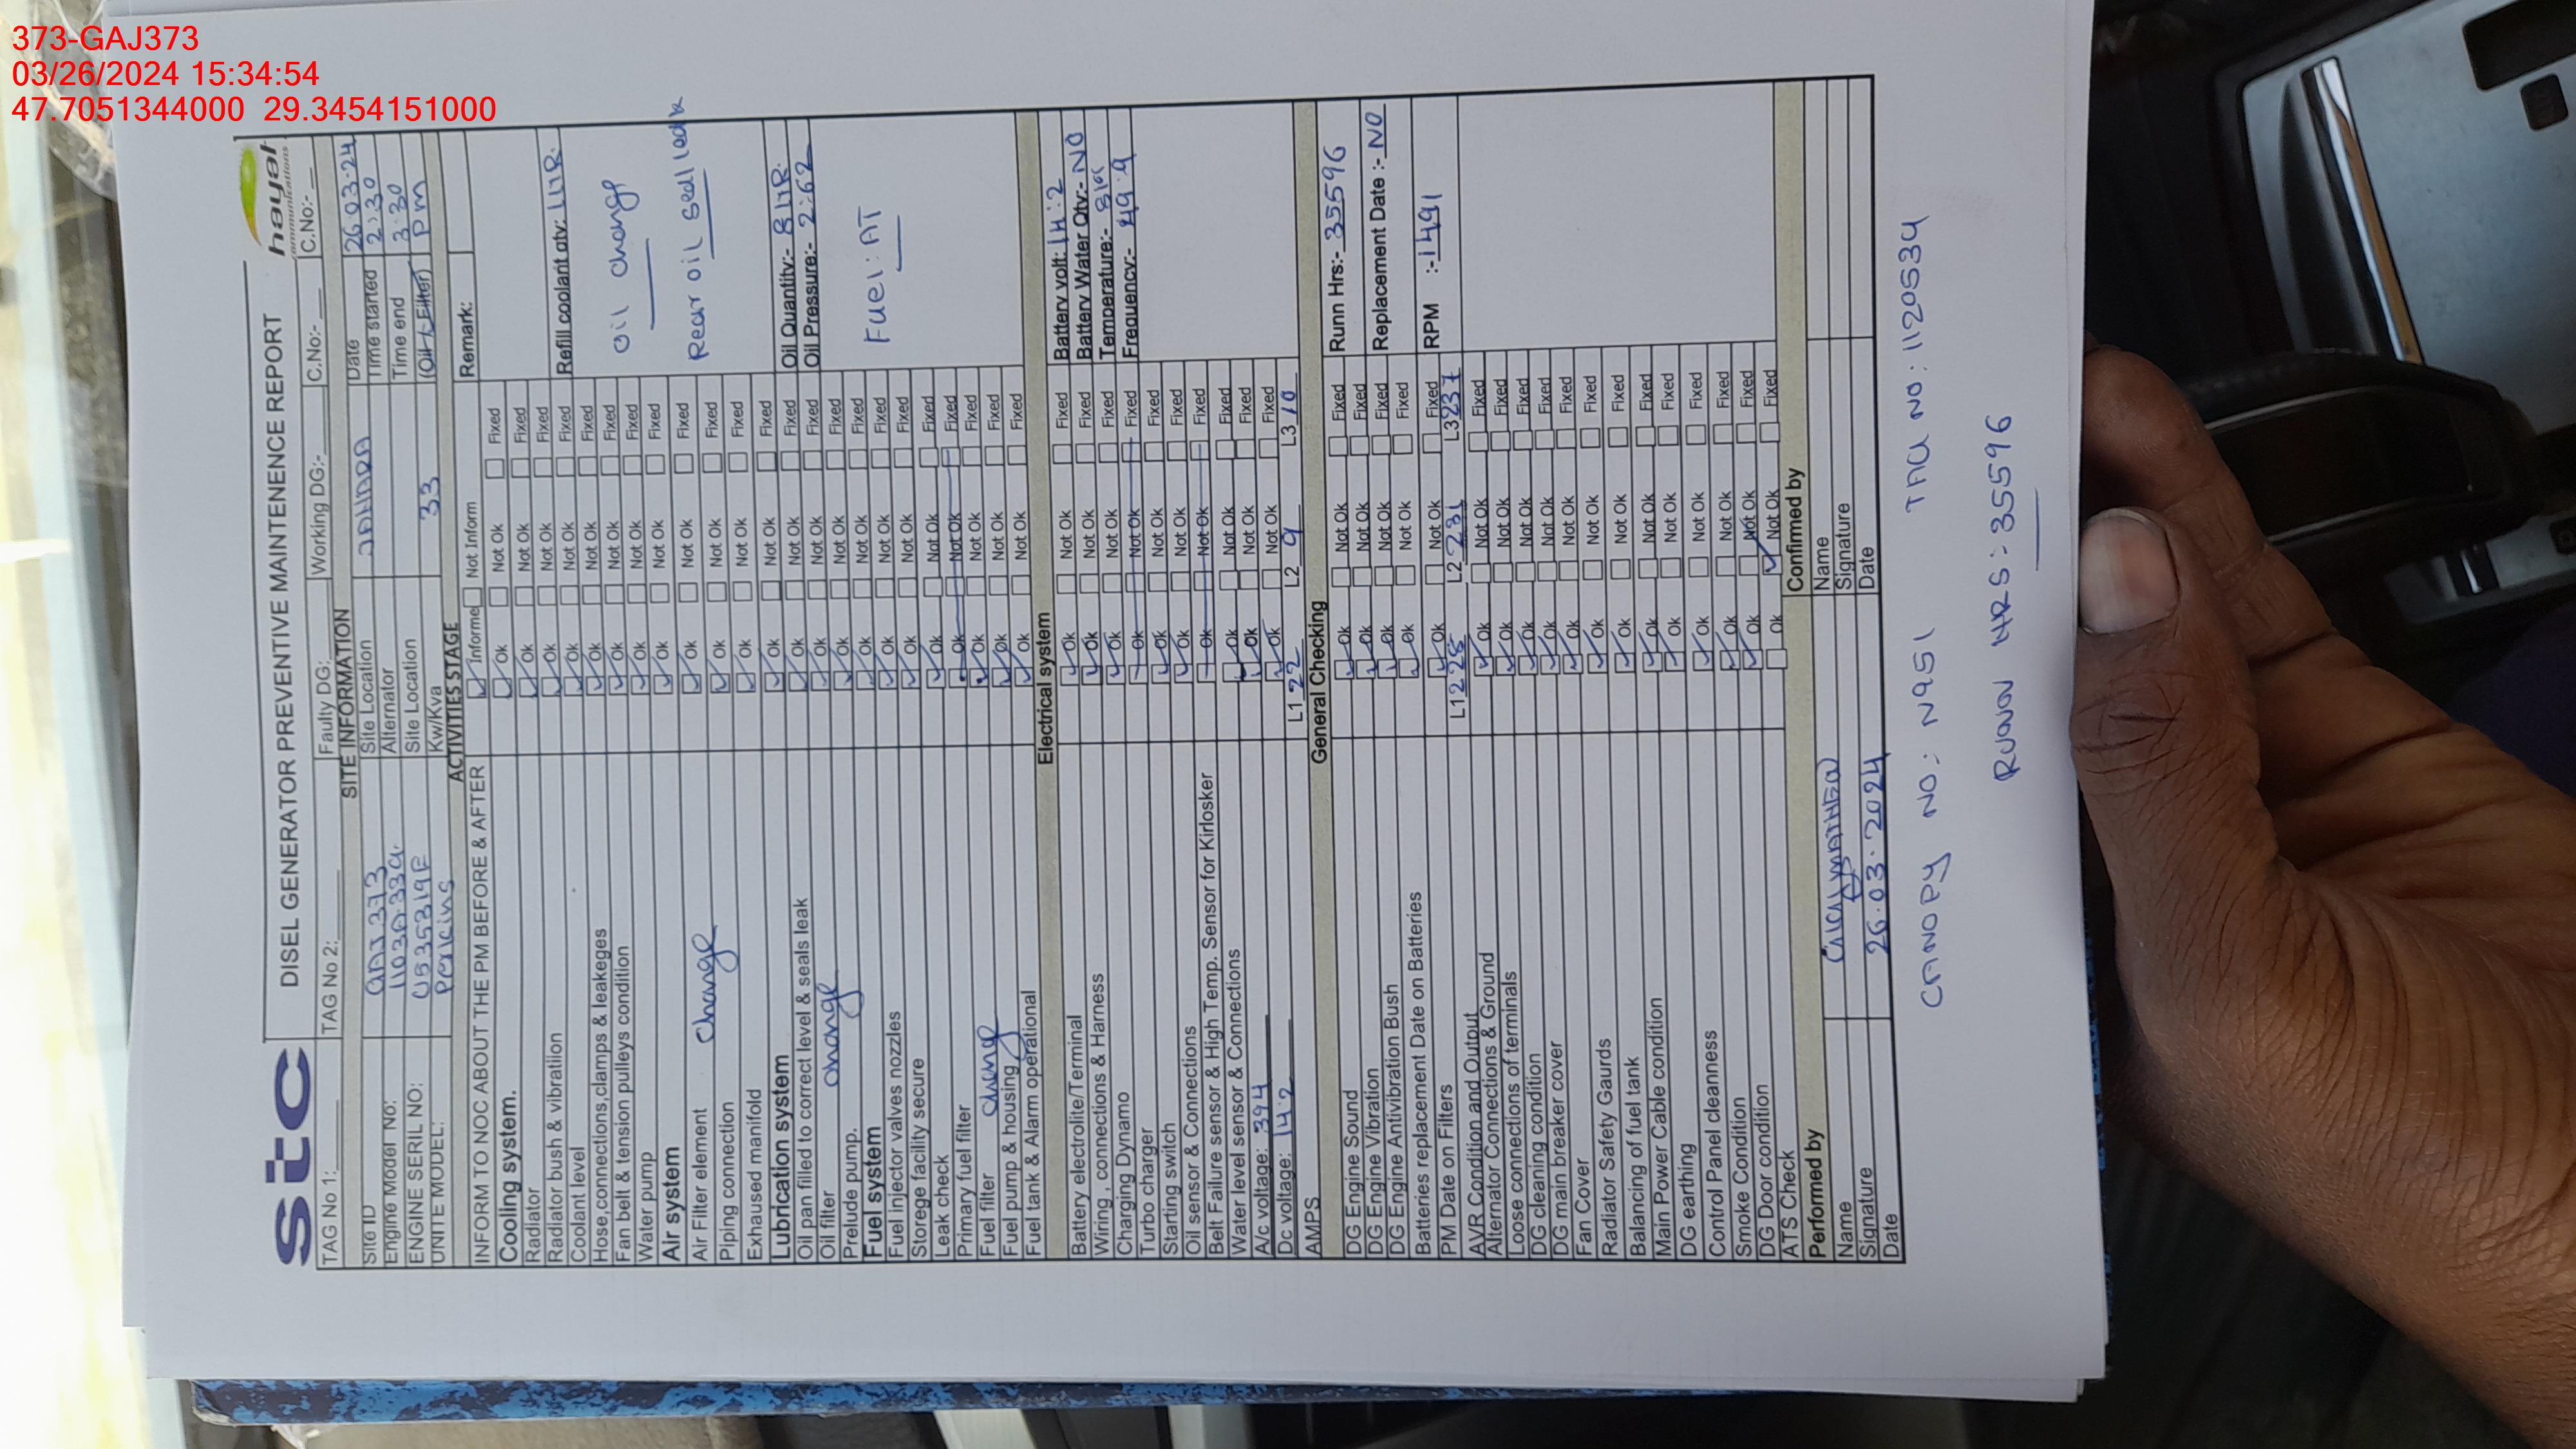 373-GAJ373
03/26/2024 15:34:54
47.7051344000 29.3454151000
stc
DISEL GENERATOR PREVENTIVE MAINTENENCE REPORT
hayat
ommunications
TAG No 1:____ TAG No 2:____ Faulty DG:____ Working DG:-____ C.No:-____ C.No:-____
SITE INFORMATION
Site ID GAJ373 Site Location JAHARA Date 26.03.24
Engine Model No: 1103A33G Alternator Time started 2:30
ENGINE SERIL NO: U835319E Site Location Time end 3:30
UNITE MODEL: Perkins Kw/Kva 33 (Oil / Filter) pm
ACTIVITIES STAGE
INFORM TO NOC ABOUT THE PM BEFORE & AFTER ☑ Informe ☐ Not Inform Remark:
Cooling system. ☑ Ok ☐ Not Ok ☐ Fixed
Radiator ☑ Ok ☐ Not Ok ☐ Fixed
Radiator bush & vibratiion ☑ Ok ☐ Not Ok ☐ Fixed
Coolant level ☑ Ok ☐ Not Ok ☐ Fixed Refill coolant qty: 1LTR.
Hose,connections,clamps & leakeges ☑ Ok ☐ Not Ok ☐ Fixed
Fan belt & tension pulleys condition ☑ Ok ☐ Not Ok ☐ Fixed oil change
Water pump ☑ Ok ☐ Not Ok ☐ Fixed
Air system
Air Filter element change ☑ Ok ☐ Not Ok ☐ Fixed Rear oil seal leak
Piping connection ☑ Ok ☐ Not Ok ☐ Fixed
Exhaused manifold ☑ Ok ☐ Not Ok ☐ Fixed
Lubrication system ☑ Ok ☐ Not Ok ☐ Fixed
Oil pan filled to correct level & seals leak ☑ Ok ☐ Not Ok ☐ Fixed Oil Quantity:- 8LTR.
Oil filter change ☑ Ok ☐ Not Ok ☐ Fixed Oil Pressure:- 2:62
Prelude pump. ☑ Ok ☐ Not Ok ☐ Fixed
Fuel system ☑ Ok ☐ Not Ok ☐ Fixed
Fuel injector valves nozzles ☑ Ok ☐ Not Ok ☐ Fixed Fuel: AT
Storege facility secure ☑ Ok ☐ Not Ok ☐ Fixed
Leak check ☑ Ok ☐ Not Ok ☐ Fixed
Primary fuel filter Ok Not Ok Fixed
Fuel filter chang ☑ Ok ☐ Not Ok ☐ Fixed
Fuel pump & housing ☑ Ok ☐ Not Ok ☐ Fixed
Fuel tank & Alarm operational
Electrical system
Battery electrolite/Terminal ☑ Ok ☐ Not Ok ☐ Fixed Battery volt: 14:2
Wiring , connections & Harness ☑ Ok ☐ Not Ok ☐ Fixed Battery Water Qty:- NO
Charging Dynamo ☑ Ok ☐ Not Ok ☐ Fixed Temperature:-
Turbo charger Ok Not Ok Fixed Frequency:- 49.9
Starting switch ☑ Ok ☐ Not Ok ☐ Fixed
Oil sensor & Connections ☑ Ok ☐ Not Ok ☐ Fixed
Belt Failure sensor & High Temp. Sensor for Kirlosker Ok Not Ok Fixed
Water level sensor & Connections ☑ Ok ☐ Not Ok ☐ Fixed
A/c voltage: 394 ☑ Ok ☐ Not Ok ☐ Fixed
Dc voltage: 14.2 ☑ Ok ☐ Not Ok ☐ Fixed
AMPS L1 22 L2 9 L3 10
General Checking
DG Engine Sound ☑ Ok ☐ Not Ok ☐ Fixed Runn Hrs:- 35596
DG Engine Vibration ☑ Ok ☐ Not Ok ☐ Fixed
DG Engine Antivibration Bush ☑ Ok ☐ Not Ok ☐ Fixed Replacement Date :- NO
Batteries replacement Date on Batteries ☑ Ok ☐ Not Ok ☐ Fixed
PM Date on Filters ☑ Ok ☐ Not Ok ☐ Fixed RPM :- 1491
AVR Condition and Output L1 228 L2 231 L3 237
Alternator Connections & Ground ☑ Ok ☐ Not Ok ☐ Fixed
Loose connections of terminals ☑ Ok ☐ Not Ok ☐ Fixed
DG cleaning condition ☑ Ok ☐ Not Ok ☐ Fixed
DG main breaker cover ☑ Ok ☐ Not Ok ☐ Fixed
Fan Cover ☑ Ok ☐ Not Ok ☐ Fixed
Radiator Safety Gaurds ☑ Ok ☐ Not Ok ☐ Fixed
Balancing of fuel tank ☑ Ok ☐ Not Ok ☐ Fixed
Main Power Cable condition ☑ Ok ☐ Not Ok ☐ Fixed
DG earthing ☑ Ok ☐ Not Ok ☐ Fixed
Control Panel cleanness ☑ Ok ☐ Not Ok ☐ Fixed
Smoke Condition ☑ Ok ☐ Not Ok ☐ Fixed
DG Door condition ☑ Ok ☐ Not Ok ☐ Fixed
ATS Check ☐ Ok ☑ Not Ok ☐ Fixed
Performed by Confirmed by
Name Name
Signature Signature
Date 26.03.2024 Date
CANOPY NO: N951 TAG NO: 1120534
RUNN HRS: 35596